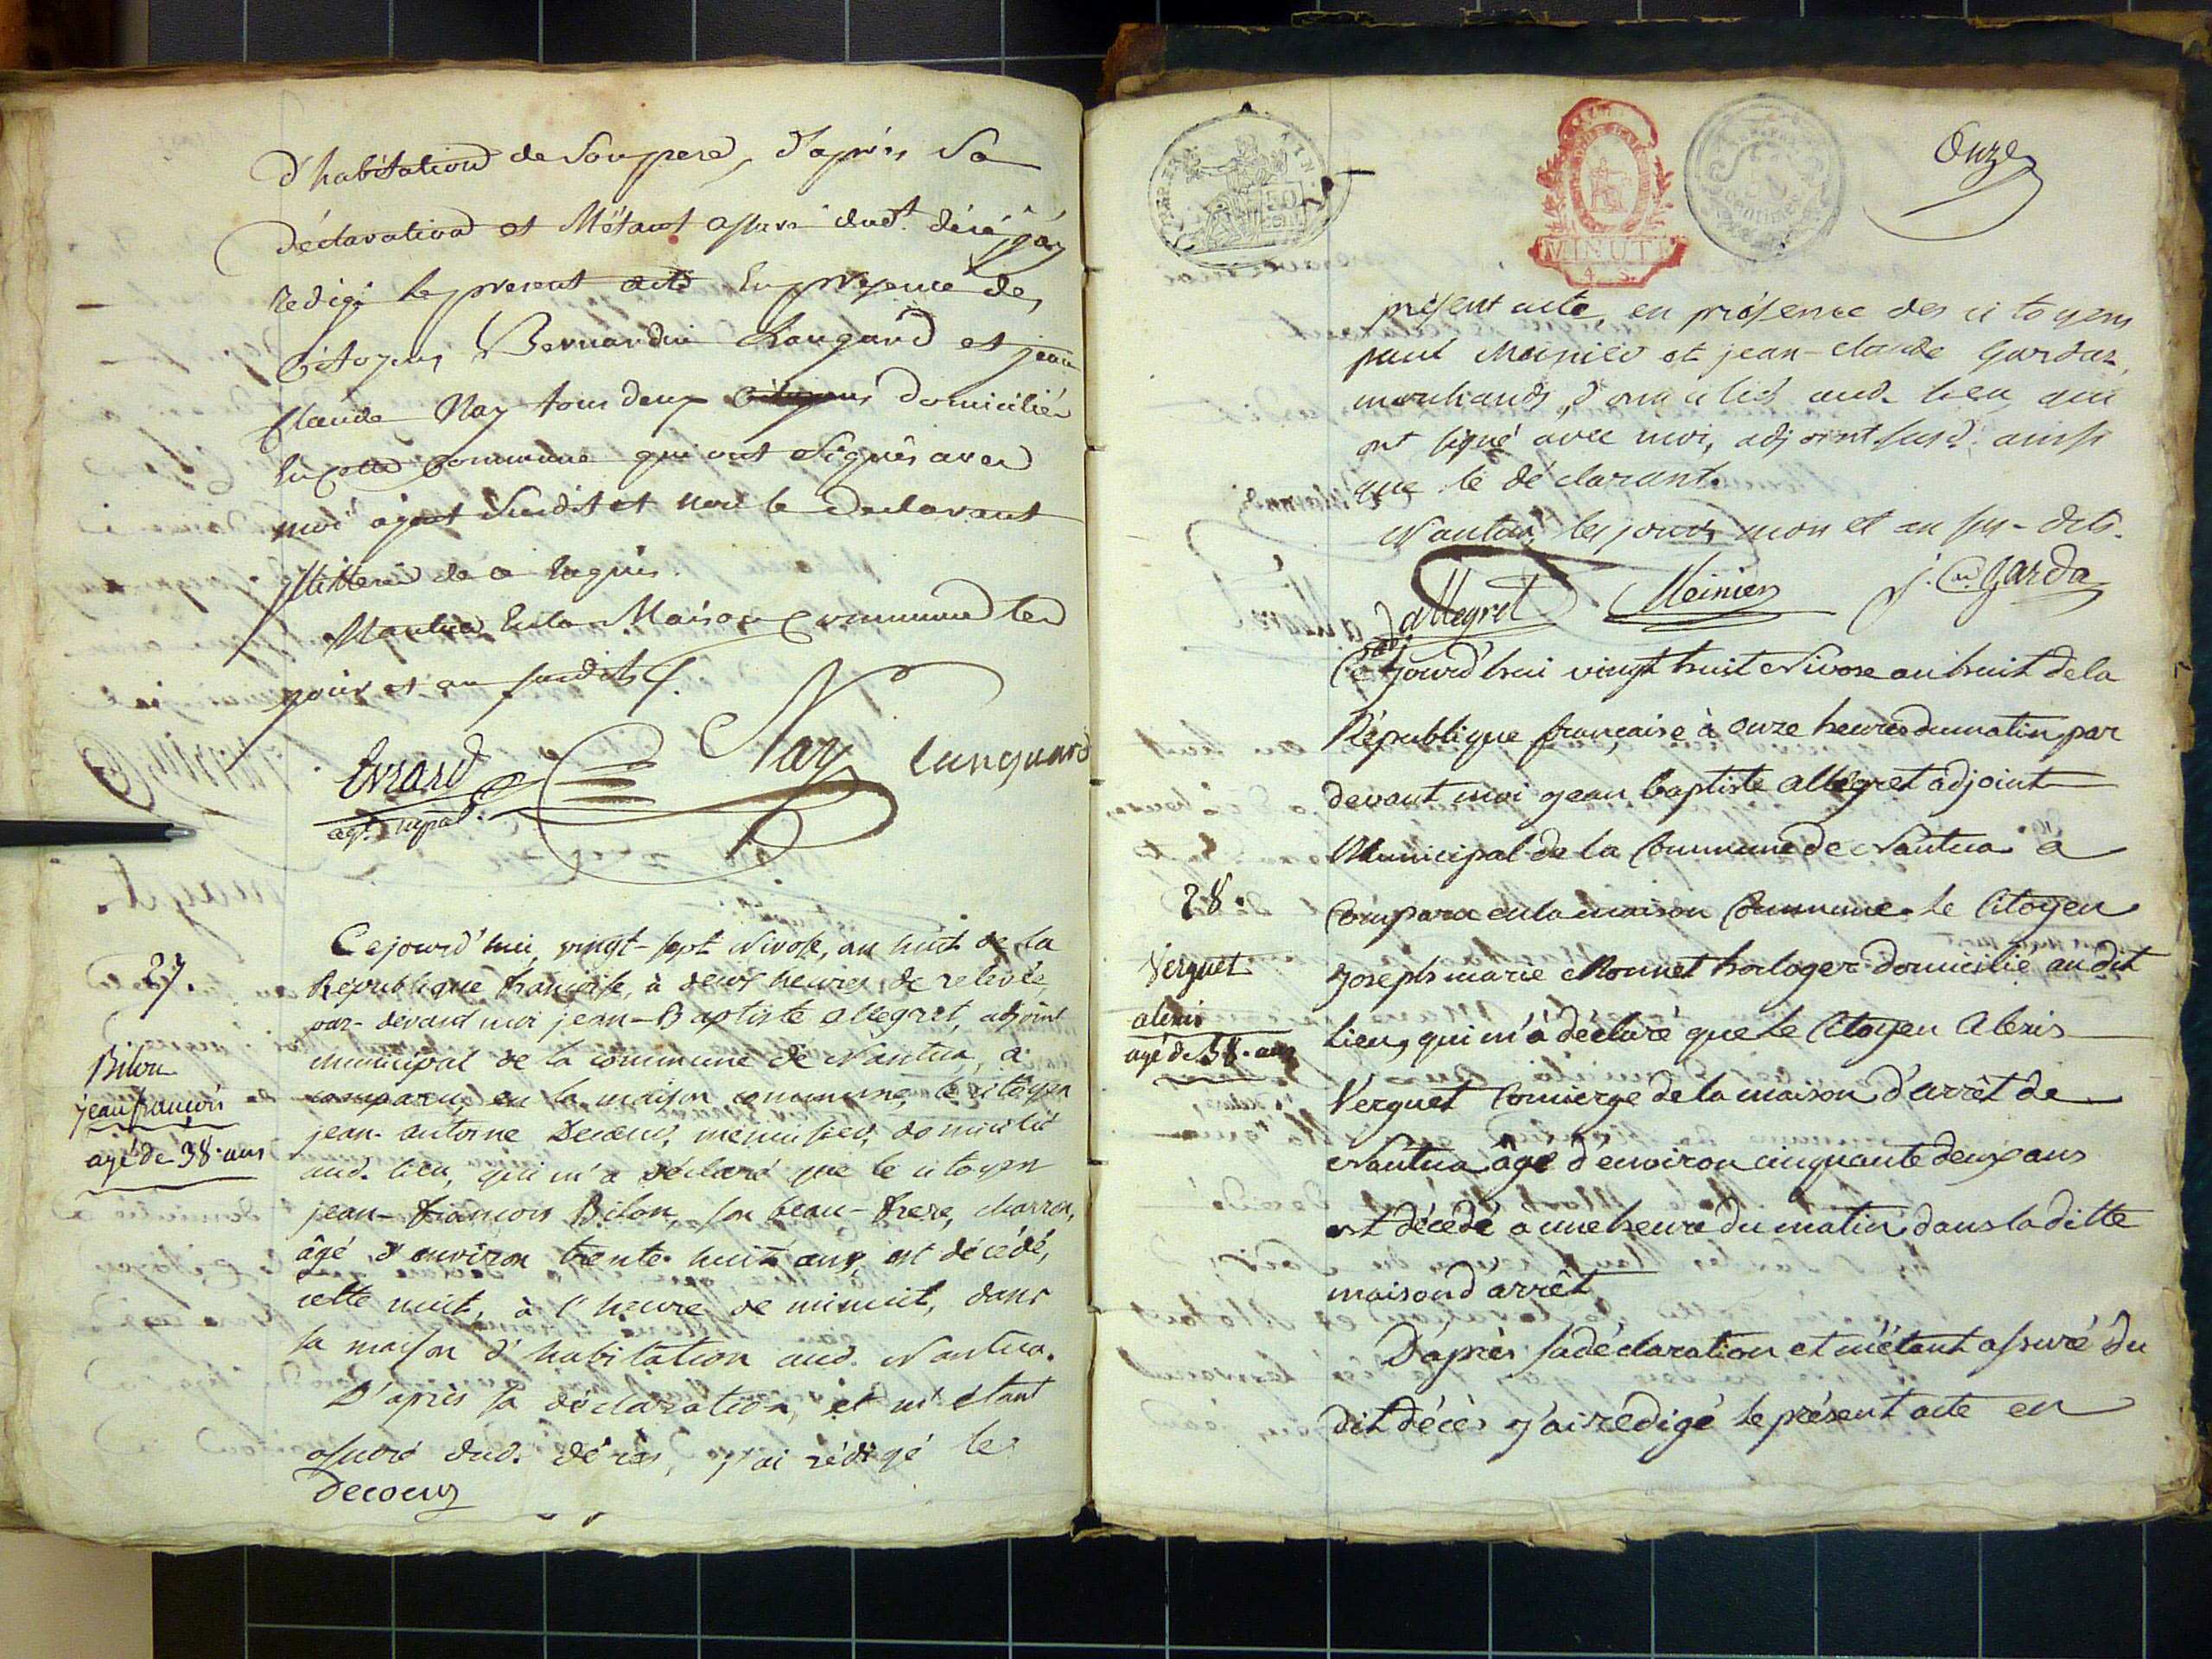 d'habitation de Son pere, d'après Sa
déclaration et M'étant assuré dudt. décé j'ay
redigé le present acte En presence des
Citoyens Bernardin Longard et jean
Claude Nay tous deux citoyens Domiciliés
En cette Commune qui ont Signés avec
moi agent Susdit et non le Declarant
illitteré de ce Enquis.
Nantua En la Maison Commune les
jour et an susdits /.
Evrard
agt. mpal.
Nay
Lungnard
27.
Bilon
jean françois
agé de 38. ans
Cejourd'hui, vingt-sept Nivose, an huit de la
République française, à deux heures de relevée,
par-devant moi jean-Baptiste Allegret, adjoint
municipal de la commune de Nantua, a
comparu, en la maison commune, le citoyen
jean-antoine Decoeur, menuisier, domicilié
aud. lieu, qui m'a déclaré que le citoyen
jean-françois Bilon, son beau-frere, charron,
âgé d'environ trente-huit ans, est décédé,
cette nuit, à l'heure de minuit, dans
sa maison d'habitation aud. Nantua.
D'après sa déclaration, et m'étant
assuré dud. décès, j'ai rédigé le
Decoeur
REP. FRA
50
CENT
MINUTE
4. S.
centimes
Onze
présent acte, en présence des citoyens
paul Meinier et jean-claude Gardaz,
marchands, domiciliés aud. lieu, qui
ont signé avec moi, adjoint susd. ainsi
que le déclarant.
Nantua, les jour, mois et an sus-dits.
Allegret
adj.
Meinier
j. Cde. Garda
28.
Verguet
alexis
agé de 58. ans
Cejourd'hui vingt huit Nivose an huit de la
République française à onze heures du matin par
devant moi jean baptiste allegret adjoint
Municipal de la Commune de Nantua à
Comparu en la maison Commune le Citoyen
joseph marie Monnet horloger domicilié au dit
lieu, qui m'à déclaré que le Citoyen Alexis
Verguet Concierge de la maison d'arrêt de
Nantua âgé d'environ cinquante deux ans
est décédé à une heure du matin dans la ditte
maison d'arrêt
D'après sa déclaration et m'étant assuré du
dit décès j'ai rédigé le présent acte en